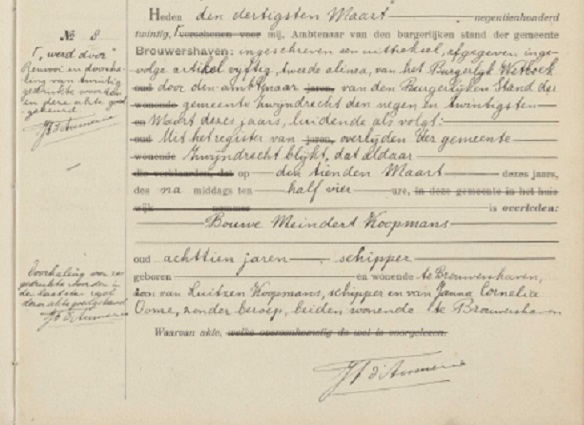 № 8
Heden den dertigsten Maart negentienhonderd
twintig, verschenen voor mij, Ambtenaar van den burgerlijken stand der gemeente
Brouwershaven: ingeschreven een uittreksel, afgegeven inge-
volge artikel vijftig, tweede alinea, van het Burgerlijk Wetboek
oud door den ambtenaar jaren, van den Burgerlijken Stand der
wonende gemeente Zwijndrecht den negen en twintigsten
en Maart dezes jaars, luidende als volgt:
oud Uit het register van jaren, overlijden der gemeente
wonende Zwijndrecht blijkt, dat aldaar
die verklaarden, dat op den tienden Maart dezes jaars,
des na middags ten half vier ure, in deze gemeente in het huis
wijk nummer is overleden:
Bouwe Meindert Koopmans
oud achttien jaren schipper
geboren en wonende te Brouwershaven,
zoon van Luitzen Koopmans, schipper en van Janna Cornelia
Oome, zonder beroep, beiden wonende te Brouwershaven
Waarvan akte, welke overeenkomstig de wet is voorgelezen.
"werd door"